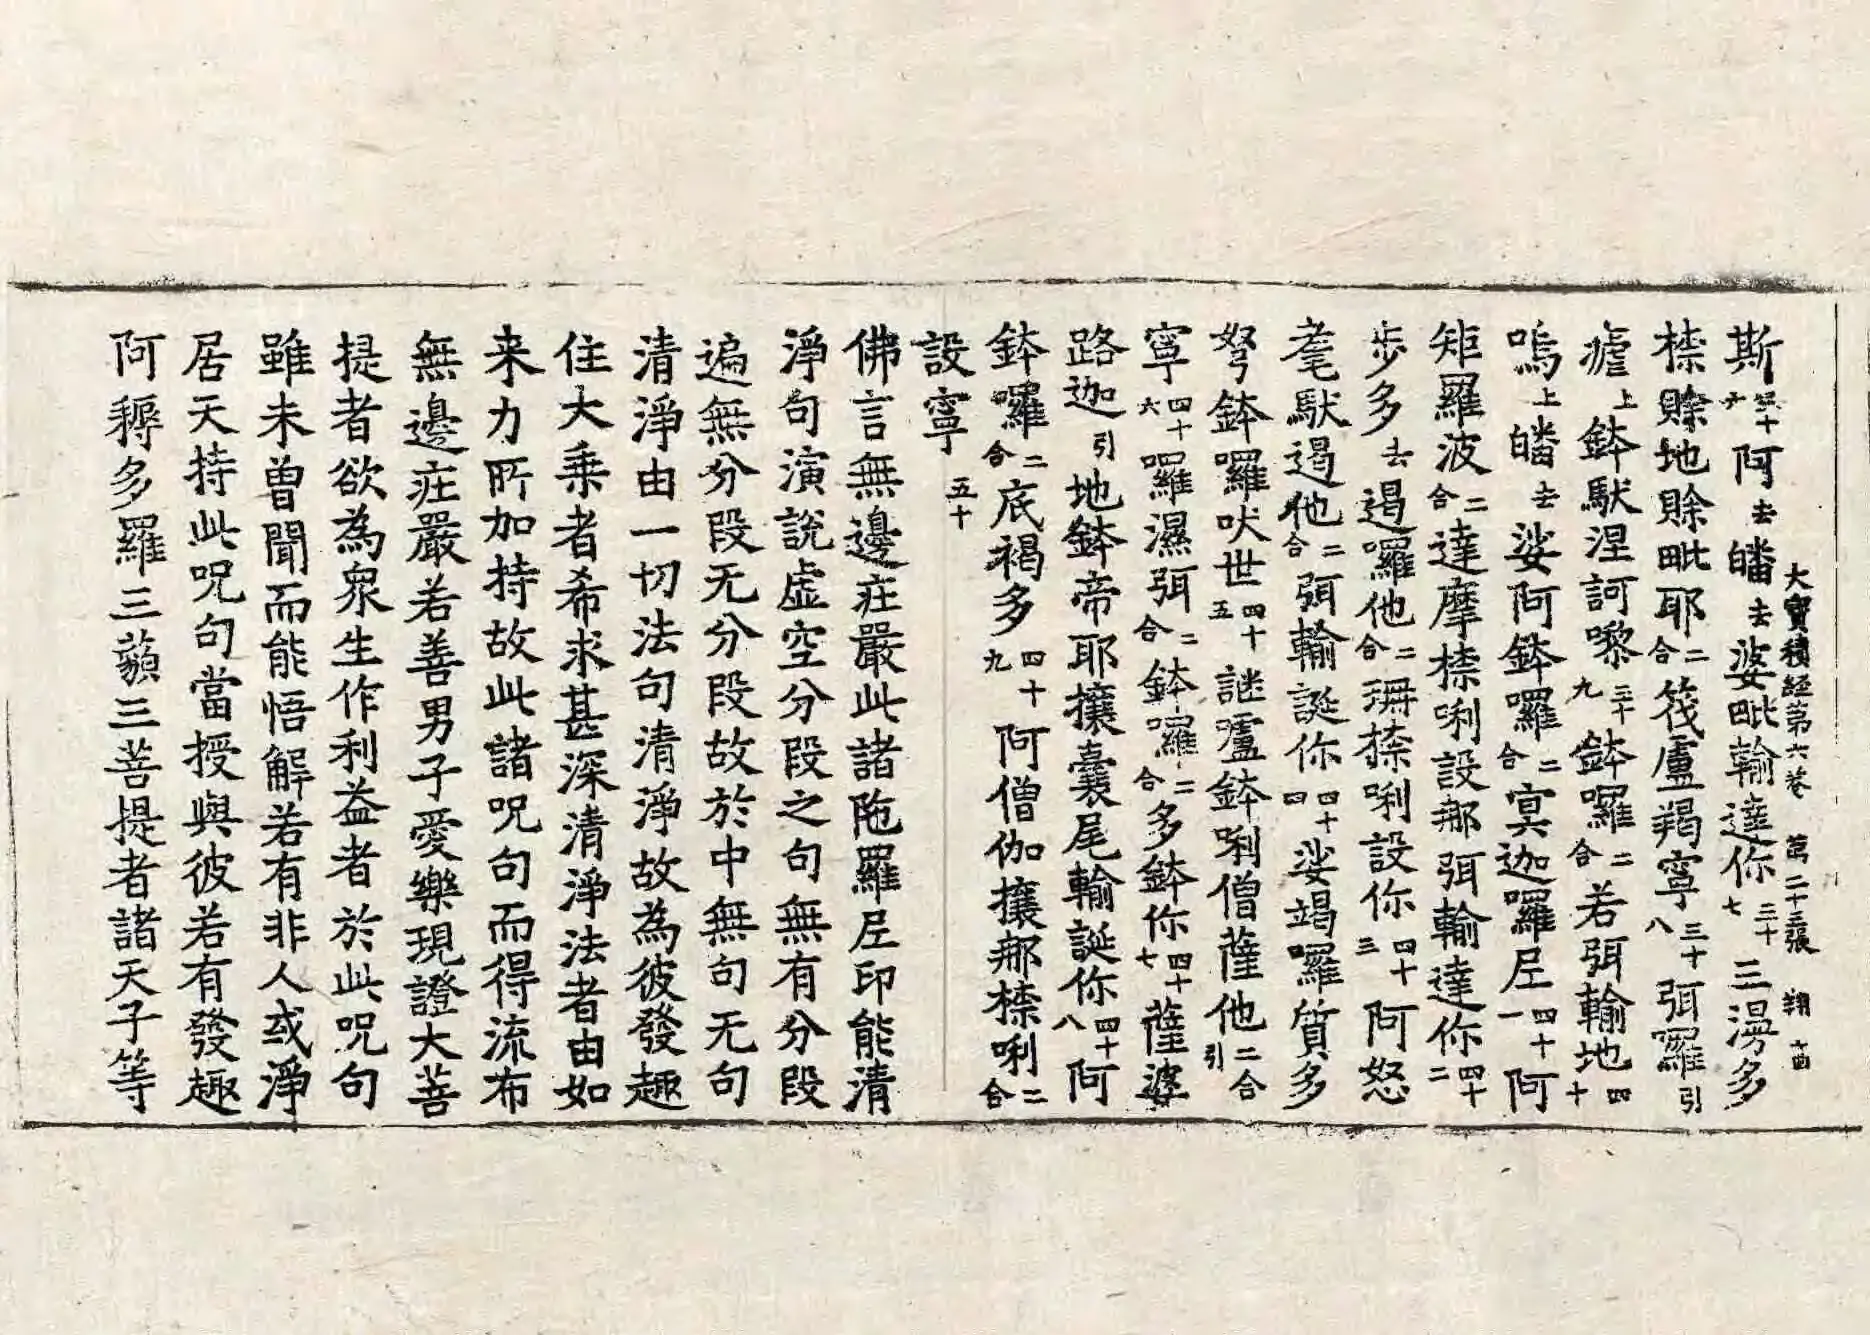 大寶積經第六卷 第二十三張 翔字号
斯三十六阿去皤去娑毗輸達你三十七三漫多
㮈賒地賒毗耶二合筏盧羯寧三十八弭羅引
瘧上鉢馱涅訶嚟三十九鉢囉二合若弭輸地四十
嗚上皤去娑阿鉢囉二合寞迦囉尼四十一阿
矩羅波二合達摩㮈唎設那弭輸達你四十二
步多去遏羅他二合珊㮈唎設你四十三阿怒
耄馱遏他二合弭輸誕你四十四娑竭囉質多
弩鉢囉吠世四十五謎嚧鉢唎僧薩他二合引
寧四十六囉濕弭二合鉢囉二合多鉢你四十七薩婆
路迦引地鉢帝耶攘囊尾輸誕你四十八阿
鉢囉二合底褐多四十九阿僧伽攘那㮈唎二合
設寧五十
佛言無邊莊嚴此諸陁羅尼印能清
淨句演說虛空分段之句無有分段
遍無分段无分段故於中無句无句
清淨由一切法句清淨故為彼發趣
住大乗者希求甚深清淨法者由如
来力所加持故此諸呪句而得流布
無邊莊嚴若善男子愛樂現證大菩
提者欲為衆生作利益者於此呪句
雖未曽聞而能悟解若有非人或淨
居天持此呪句當授與彼若有發趣
阿耨多羅三藐三菩提者諸天子等